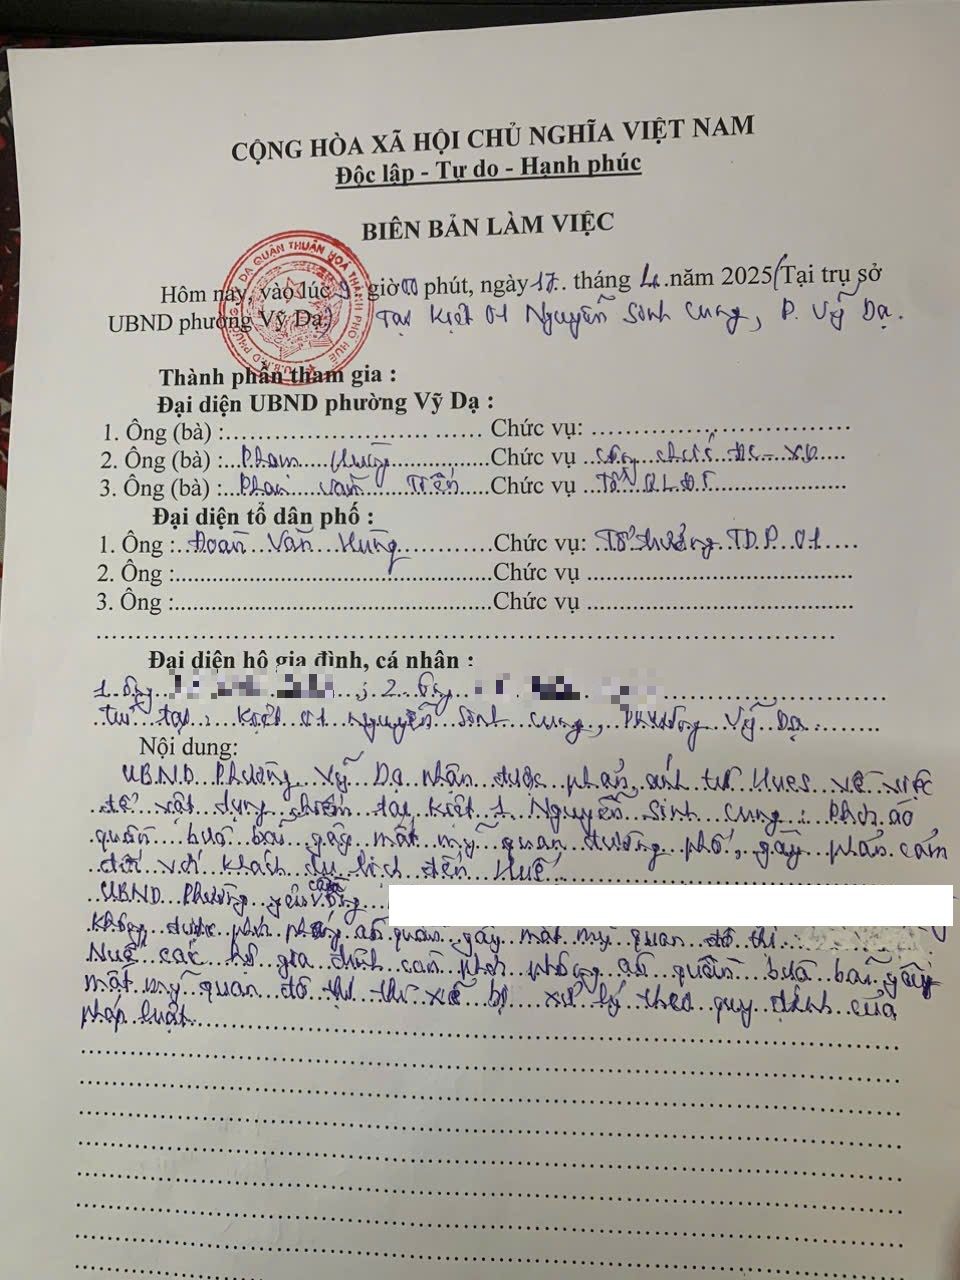 CỘNG HÒA XÃ HỘI CHỦ NGHĨA VIỆT NAM
Độc lập - Tự do - Hạnh phúc
BIÊN BẢN LÀM VIỆC
Hôm nay, vào lúc 9 giờ 00 phút, ngày 17 tháng 4 năm 2025 (Tại trụ sở
UBND phường Vỹ Dạ) Tại Kiệt 01 Nguyễn Sinh Cung, P. Vỹ Dạ.
Thành phần tham gia :
Đại diện UBND phường Vỹ Dạ :
1. Ông (bà) : Chức vụ:
2. Ông (bà) : Phạm Hùng Chức vụ công chức ĐC-XD
3. Ông (bà) : Phan Văn Tiến Chức vụ Tổ QLĐT
Đại diện tổ dân phố :
1. Ông : Đoàn Văn Hùng Chức vụ: Tổ trưởng TDP 01
2. Ông : Chức vụ
3. Ông : Chức vụ
Đại diện hộ gia đình, cá nhân :
1. Ông ; 2. Ông
tại : Kiệt 01 Nguyễn Sinh Cung, Phường Vỹ Dạ
Nội dung:
UBND Phường Vỹ Dạ nhận được phản ánh từ Hues về việc
để vật dụng chiếm tại Kiệt 1 Nguyễn Sinh Cung : Phơi áo
quần bừa bãi gây mất mỹ quan đường phố, gây phản cảm
đối với khách du lịch đến Huế.
UBND Phường yêu cầu
không được phơi phóng áo quần gây mất mỹ quan đô thị
Nếu các hộ gia đình còn phơi phóng áo quần bừa bãi gây
mất mỹ quan đô thị thì sẽ bị xử lý theo quy định của
pháp luật.